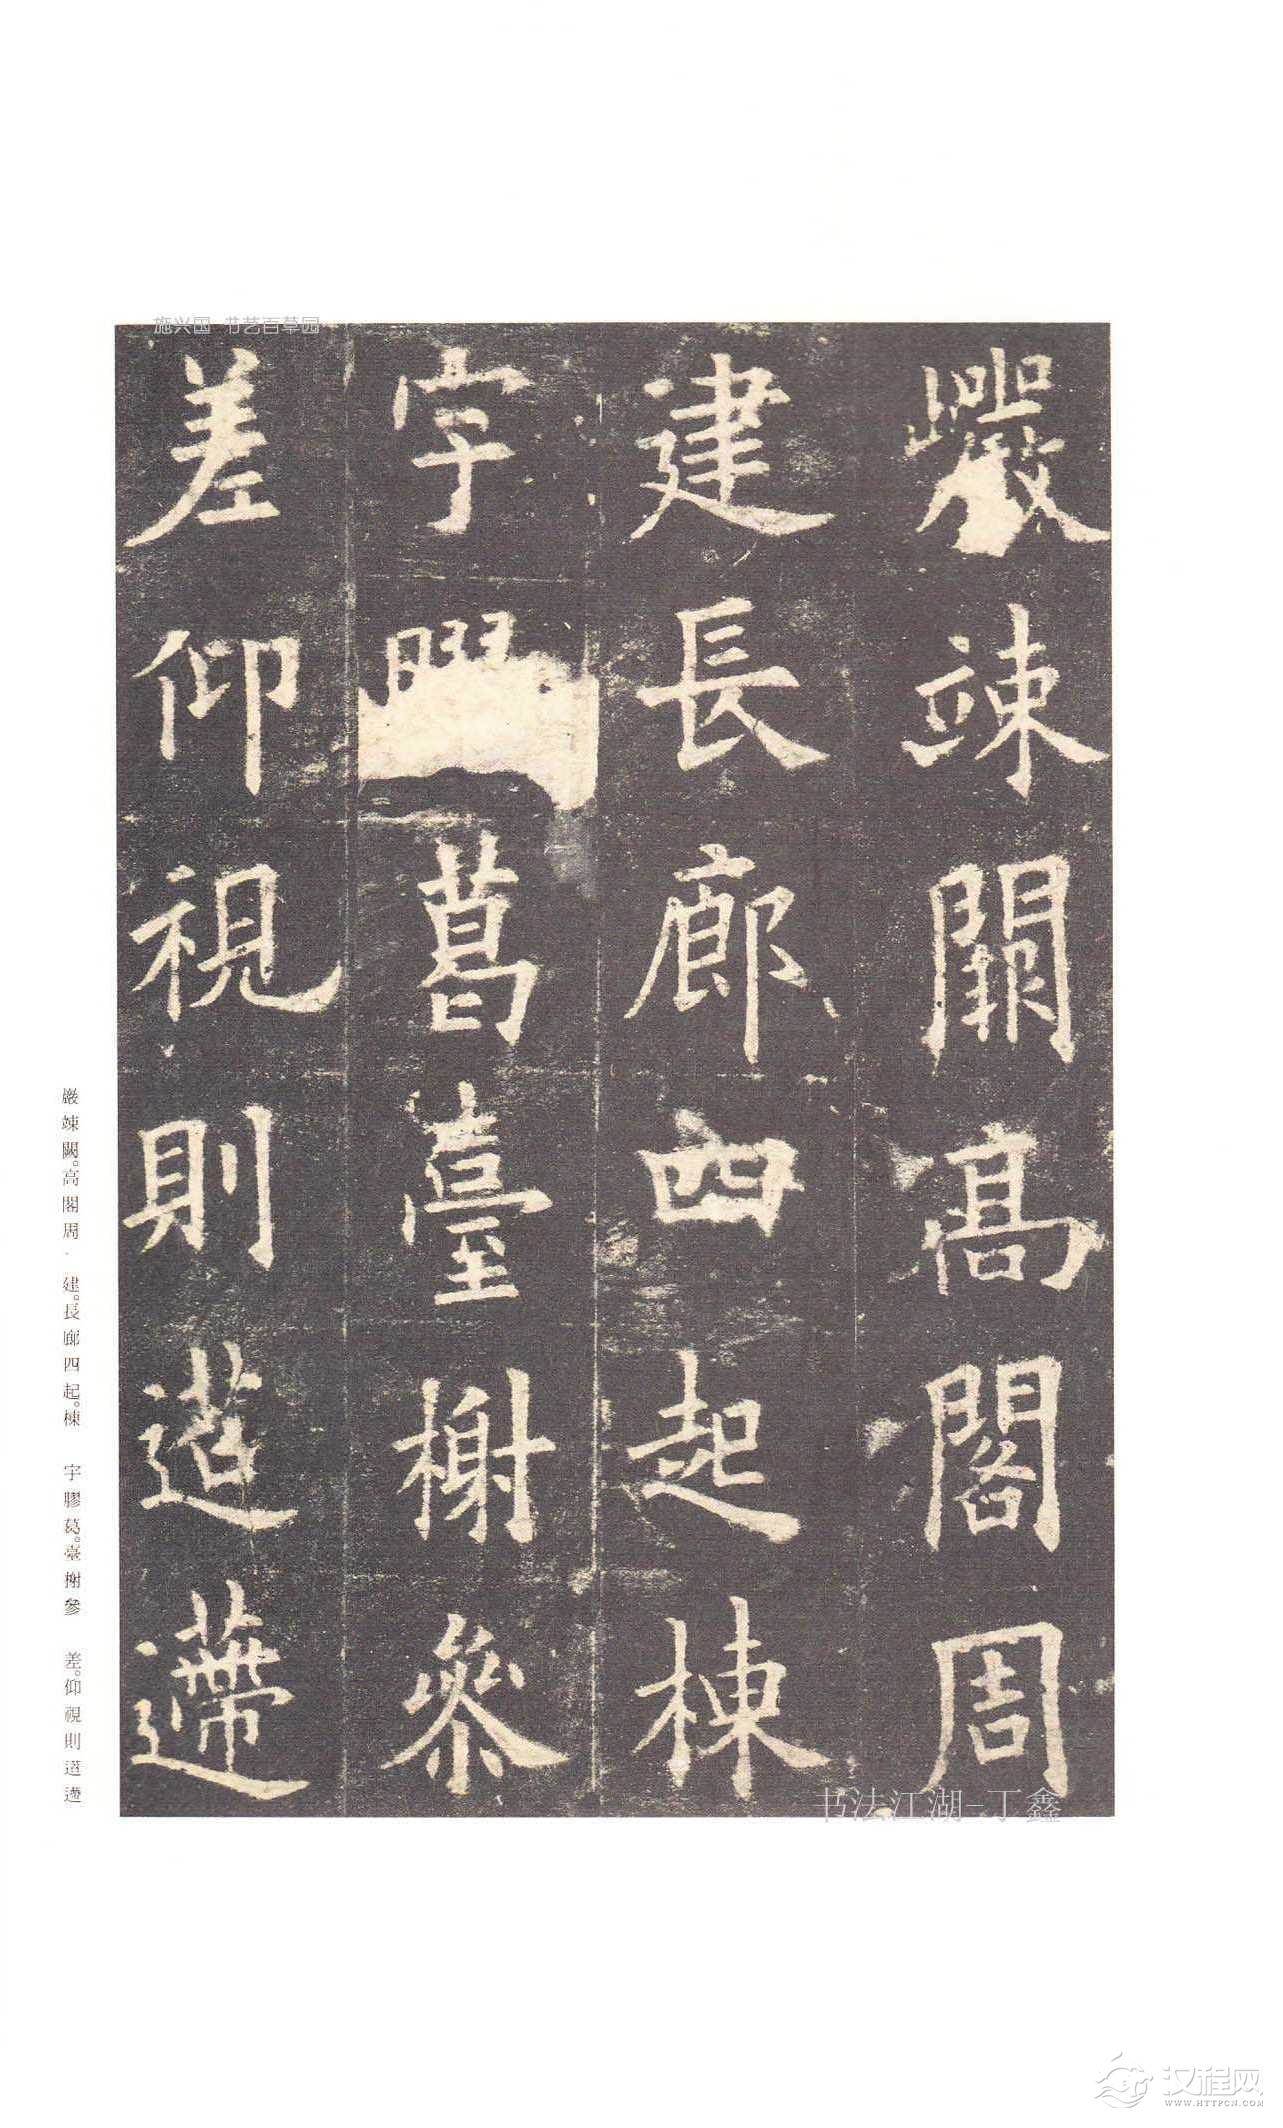 施兴国 书艺百草园
巖竦闕高閣周
建長廊四起棟
宇膠葛臺榭參
差仰視則迢遰
巖竦闕。高閣周·建。長廊四起。棟 宇膠葛。臺榭參 差。仰視則迢遰
书法江湖-丁鑫
汉程网
WWW.HTTPCN.COM